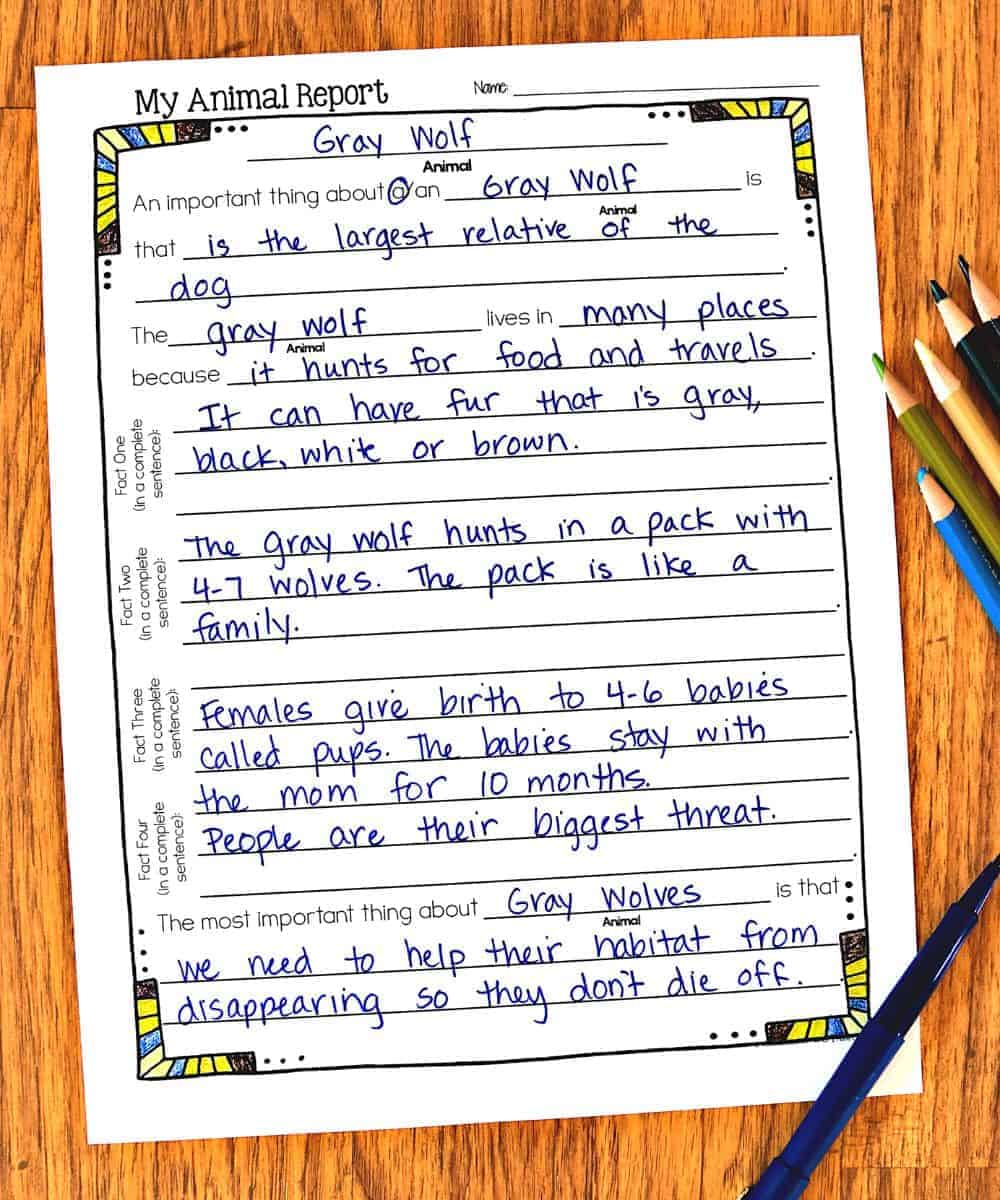 My Animal Report Name:
Gray Wolf
Animal
An important thing about a/an Gray Wolf is
Animal
that is the largest relative of the
dog.
The gray wolf lives in many places
Animal
because it hunts for food and travels.
Fact One
(in a complete
sentence):
It can have fur that is gray,
black, white or brown.
.
Fact Two
(in a complete
sentence):
The gray wolf hunts in a pack with
4-7 wolves. The pack is like a
family.
.
Fact Three
(in a complete
sentence):
Females give birth to 4-6 babies
called pups. The babies stay with.
the mom for 10 months.
Fact Four
(in a complete
sentence):
People are their biggest threat.
.
The most important thing about Gray Wolves is that
Animal
we need to help their habitat from
disappearing so they don't die off.